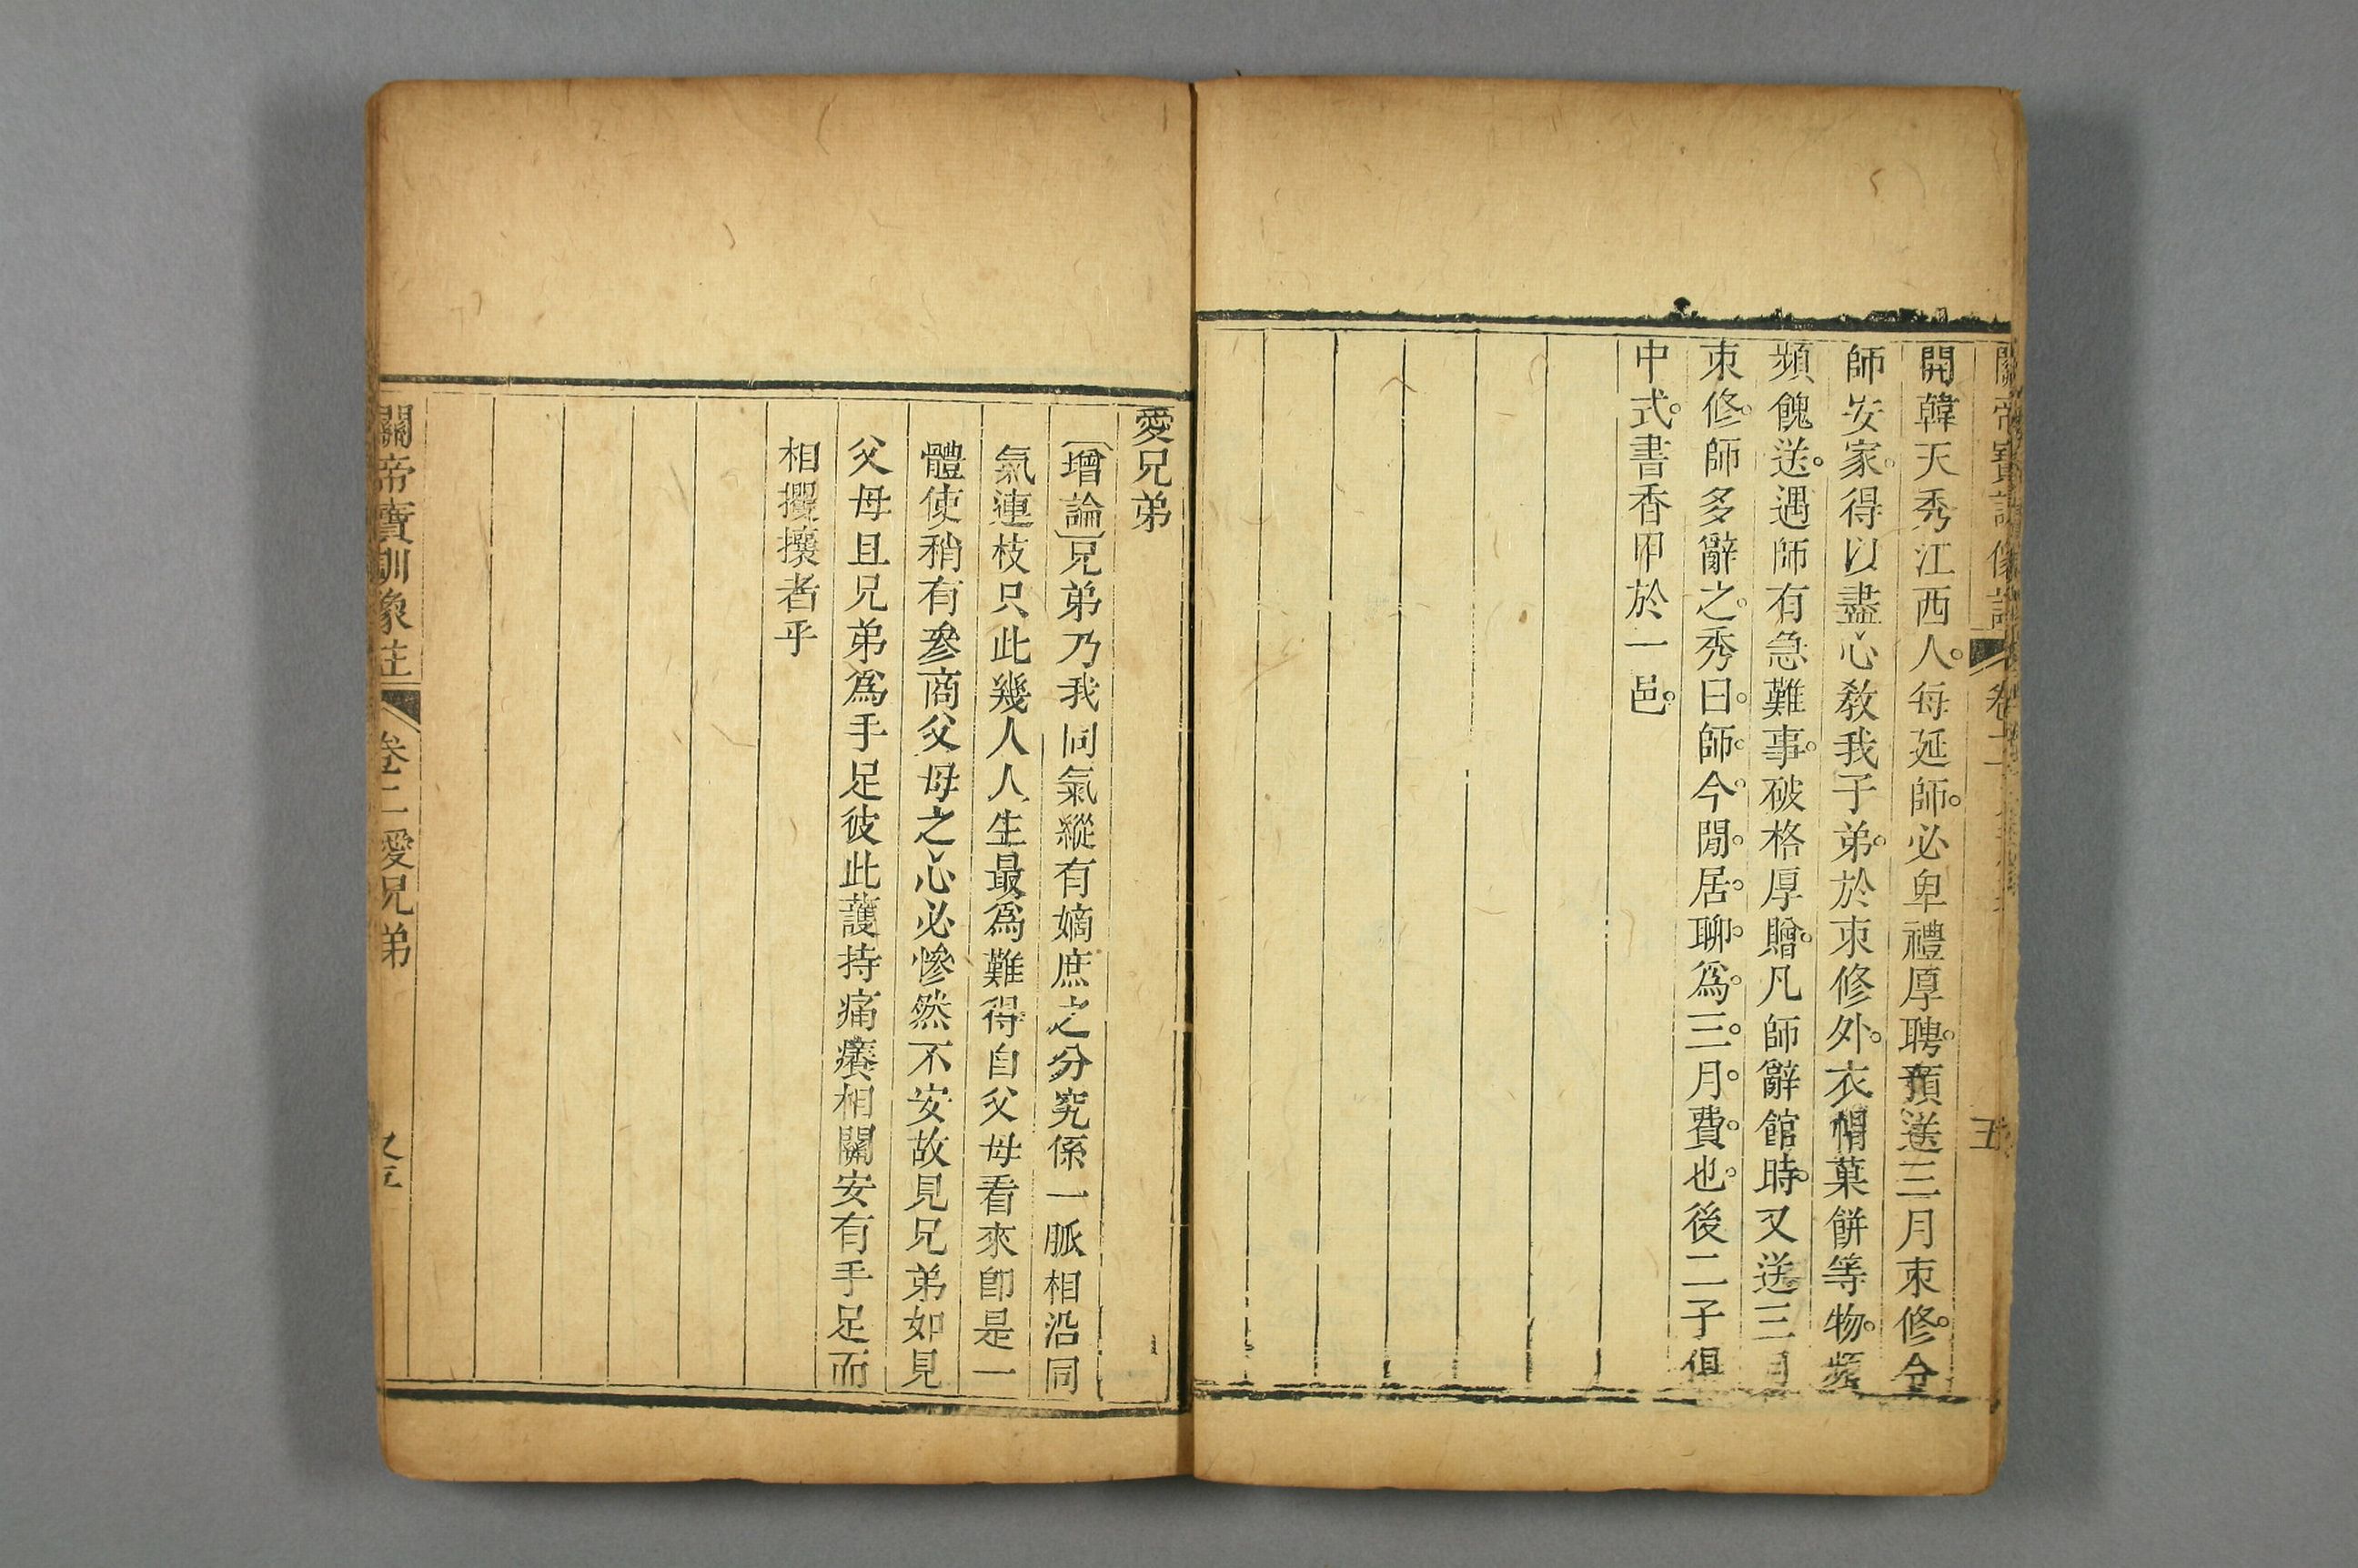 關帝寶訓像註 卷二 五
開韓天秀江西人。每延師。必卑禮厚聘。預送三月束修。令
師安家。得以盡心教我子弟。於束修外。衣帽菓餅等物。頻
頻餽送。遇師有急難事。破格厚贈。凡師辭館時。又送三月
束修。師多辭之。秀曰。師。今。閒。居。聊。爲。三。月。費。也。後二子俱
中式。書香甲於一邑。
愛兄弟
〔增論〕兄弟乃我同氣縱有嫡庶之分究係一脈相沿同
氣連枝只此幾人人生最爲難得自父母看來卽是一
體使稍有參商父母之心必慘然不安故見兄弟如見
父母且兄弟爲手足彼此護持痛癢相關安有手足而
相攫攘者乎
關帝寶訓像註 卷二 愛兄弟 又五